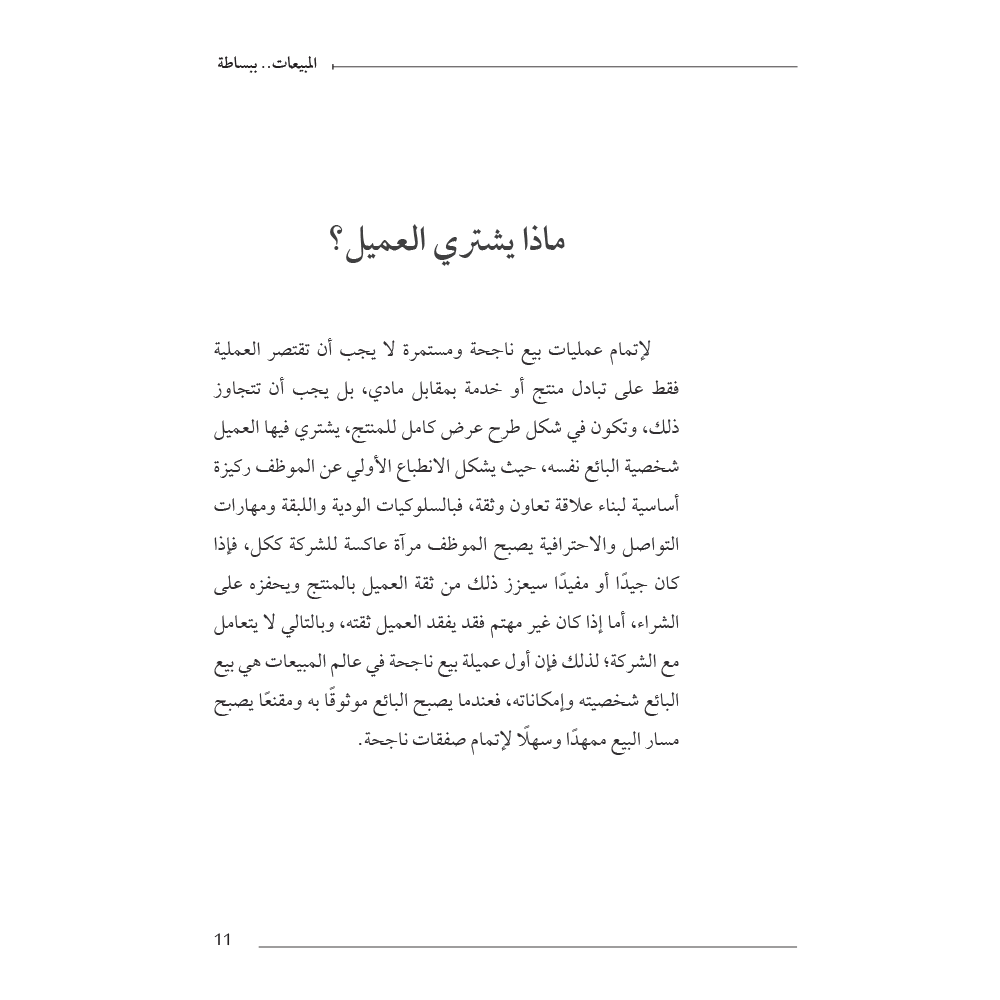 المبيعات.. ببساطة
ماذا يشتري العميل؟
لإتمام عمليات بيع ناجحة ومستمرة لا يجب أن تقتصر العملية
فقط على تبادل منتج أو خدمة بمقابل مادي، بل يجب أن تتجاوز
ذلك، وتكون في شكل طرح عرض كامل للمنتج، يشتري فيها العميل
شخصية البائع نفسه، حيث يشكل الانطباع الأولي عن الموظف ركيزة
أساسية لبناء علاقة تعاون وثقة، فبالسلوكيات الودية واللبقة ومهارات
التواصل والاحترافية يصبح الموظف مرآة عاكسة للشركة ككل، فإذا
كان جيدًا أو مفيدًا سيعزز ذلك من ثقة العميل بالمنتج ويحفزه على
الشراء، أما إذا كان غير مهتم فقد يفقد العميل ثقته، وبالتالي لا يتعامل
مع الشركة؛ لذلك فإن أول عميلة بيع ناجحة في عالم المبيعات هي بيع
البائع شخصيته وإمكاناته، فعندما يصبح البائع موثوقًا به ومقنعًا يصبح
مسار البيع ممهدًا وسهلًا لإتمام صفقات ناجحة.
11